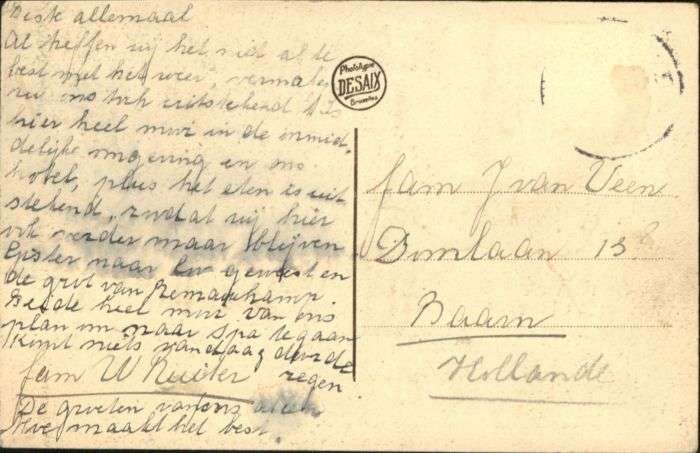 Beste allemaal
Al treffen wij het niet al te
best met het weer, vermaken
we ons toch uitstekend. 't Is
hier heel mooi in de onmid,
delijke omgeving en ons
hotel, plus het eten is uit
stekend, zodat wij hier
ook verder maar blijven
Gister naar geweest en
de grot van Remouchamp.
Beide heel mooi van ons
plan om naar Spa te gaan
komt niets vandaag door de
regen
fam W Ruiter
De groeten van ons allen
Hoe maakt het best.
Phototypie
DESAIX
Bruxelles
fam J van Veen
Domlaan 13
Baarn
Hollande